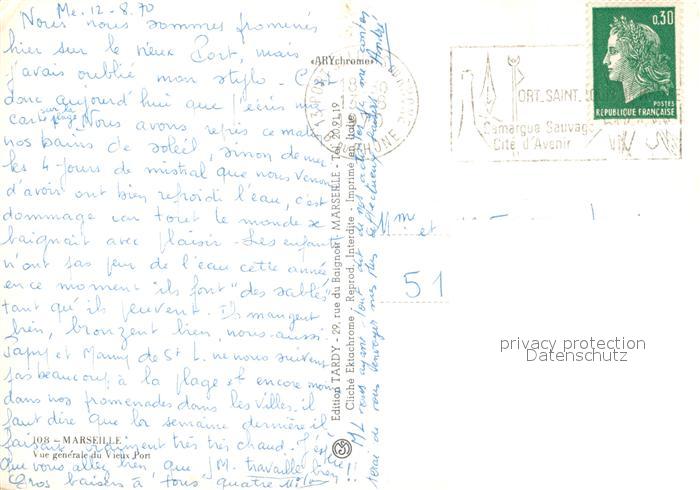 Me. 12-8.70
Nous nous sommes promenés
hier sur le vieux Port, mais
j'avais oublié mon stylo. C'est
donc aujourd'hui que j'écris ma
carte sur la plage. Nous avons repris ce matin
nos bains de soleil, sinon de mer
les 4 jours de mistral que nous venons
d'avoir ont bien refroidi l'eau, c'est
dommage car tout le monde se
baignait avec plaisir. Les enfants
n'ont pas peur de l'eau cette année
en ce moment ils font "des sablés"
tant qu'ils peuvent. Ils mangent
bien, bronzent bien, nous aussi.
Papy et Mamy de St L. ne nous suivent
pas beaucoup à la plage et encore moins
dans nos promenades dans les villes, il
faut dire que la semaine dernière il
faisait vraiment très très chaud. J'espère
que vous allez bien que JM. travaille bien !!
Gros baisers à tous quatre
108 - MARSEILLE
Vue générale du Vieux Port
«ARYchrome»
Edition TARDY - 29, rue du Baignoir - MARSEILLE - Tél. 20.21.19
Cliché Ektachrome - Reprod. Interdite - Imprimé en Italie
ML vous ayant tout dit de nos
de vous envoyer mes plus affectueux
André
PORT SAINT LOUIS
Camargue Sauvage
Cité d'Avenir
0,30
POSTES
REPUBLIQUE FRANÇAISE
Mme et
51
privacy protection
Datenschutz